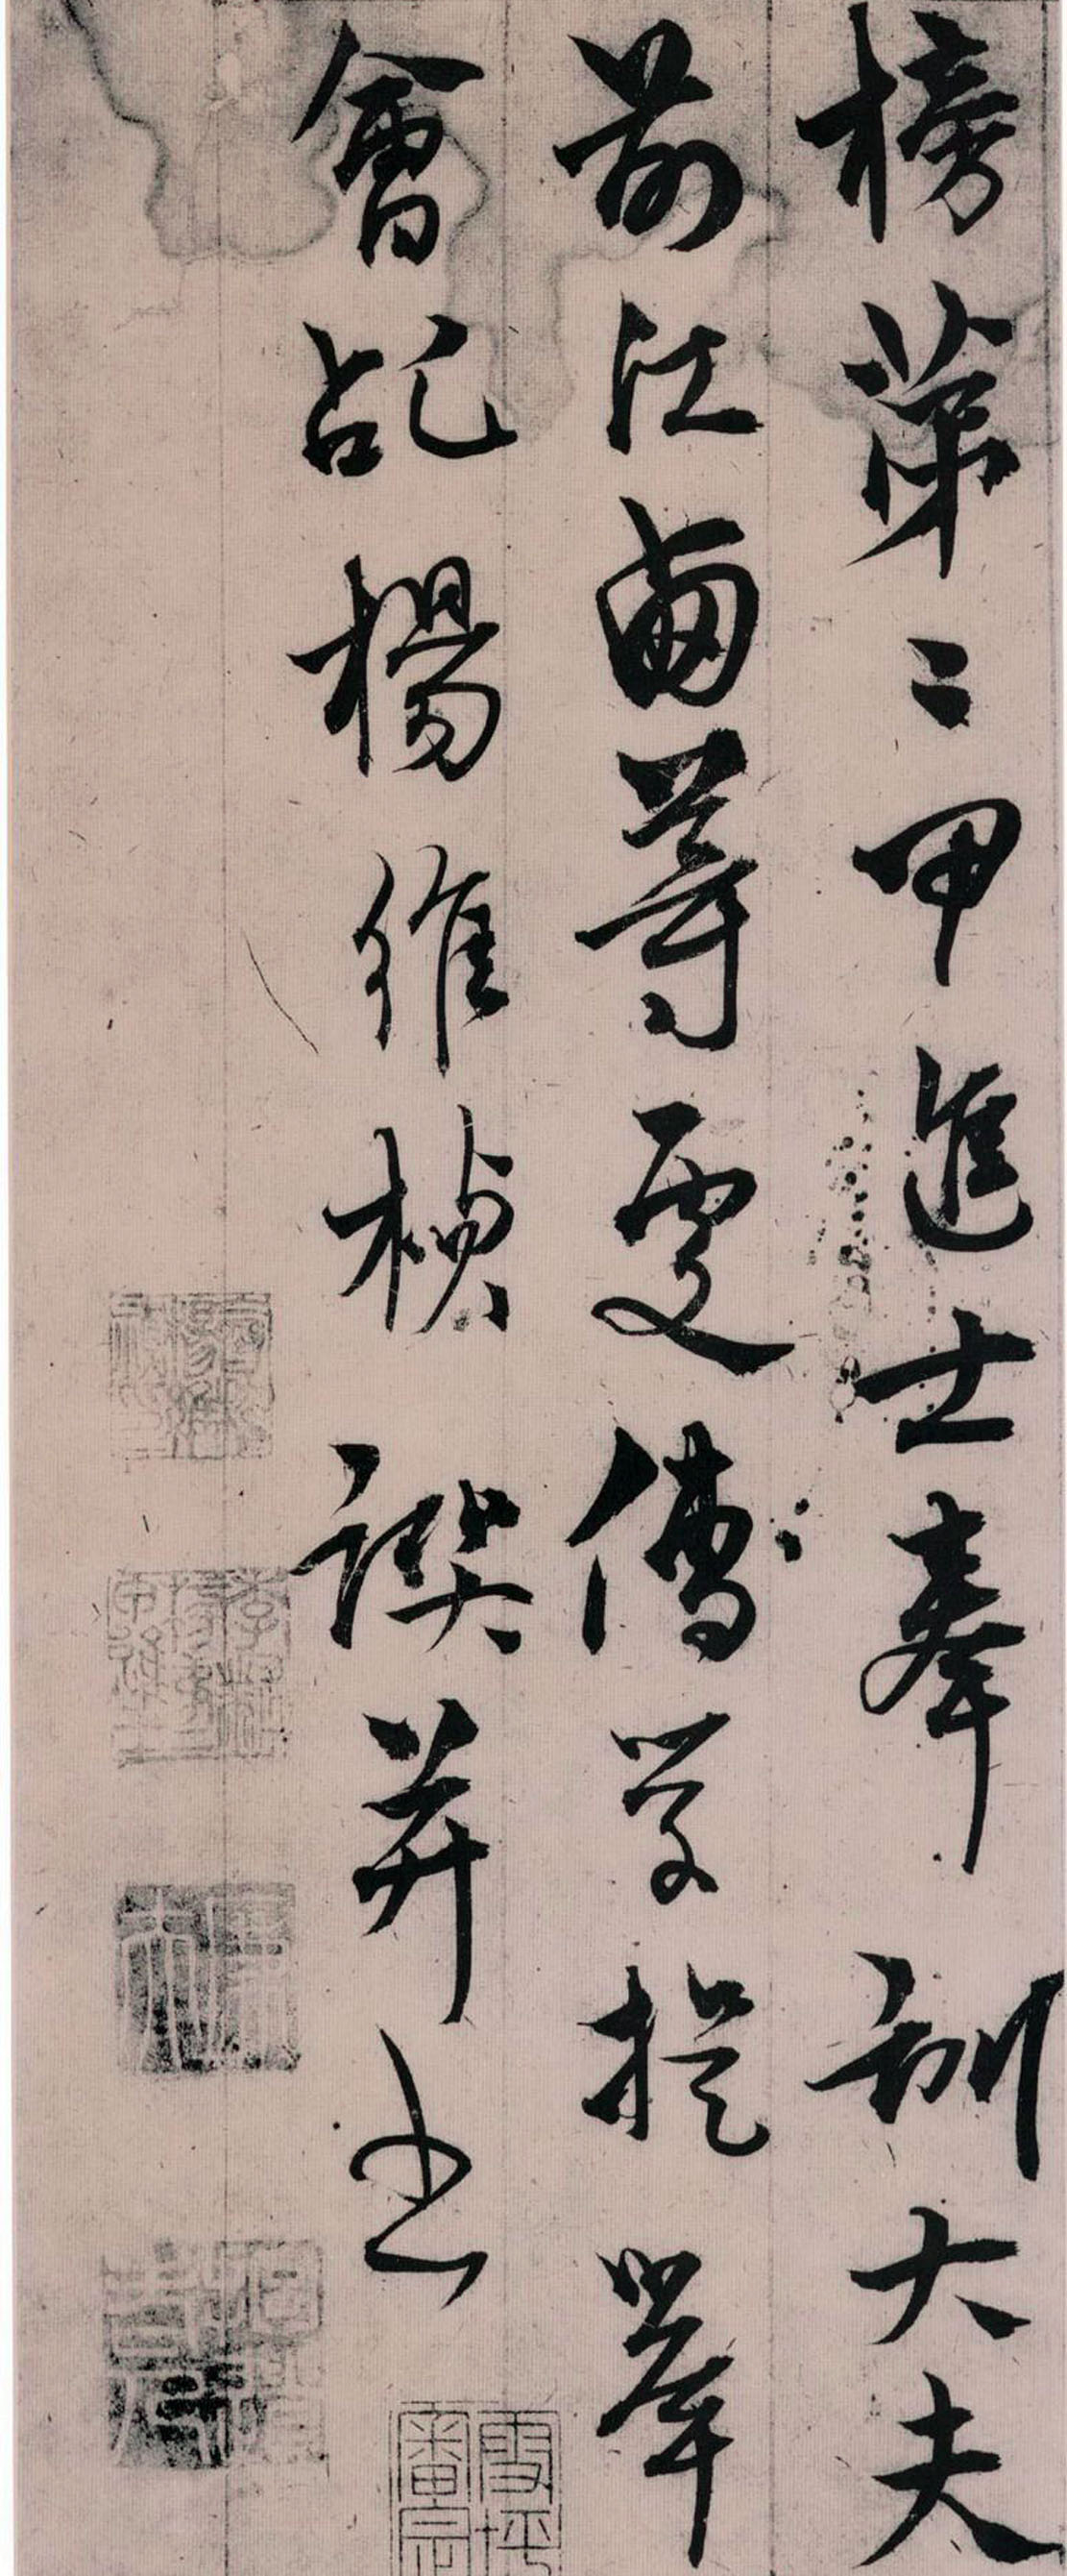 榜第二甲進士奉訓大夫
前江西等處儒學提舉
會乩楊維楨譔并書